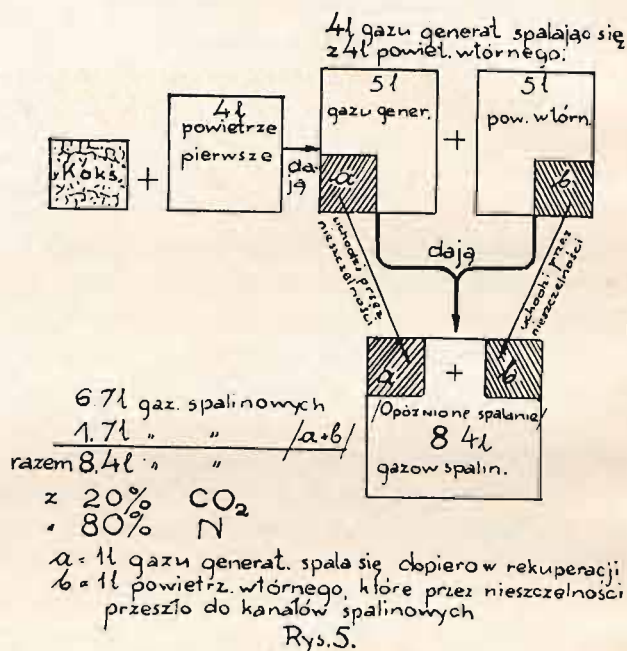 4l gazu generat spalając się
z 4l powiet. wtórnego:
5l
gazu gener.
5l
pow. wtórn.
4l
powietrze
pierwsze
Koks.
+
+
da-
ją
a
b
uchodzi przez
nieszczelności
dają
uchodzi przez
nieszczelności
a
+
b
/Opóźnione spalanie/
8 4l
gazow spalin.
6.7l gaz. spalinowych
1.7l " " /a+b/
razem 8.4l " "
z 20% CO2
" 80% N
a = 1l gazu generat. spala się dopiero w rekuperacji
b = 1l powietrz. wtórnego, które przez nieszczelności
przeszło do kanałów spalinowych
Rys.5.